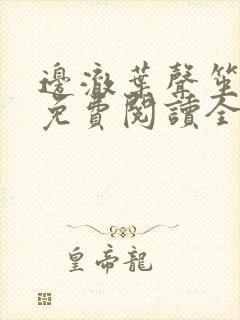 邊澈葉聲笙
免費閱讀全
皇帝龍